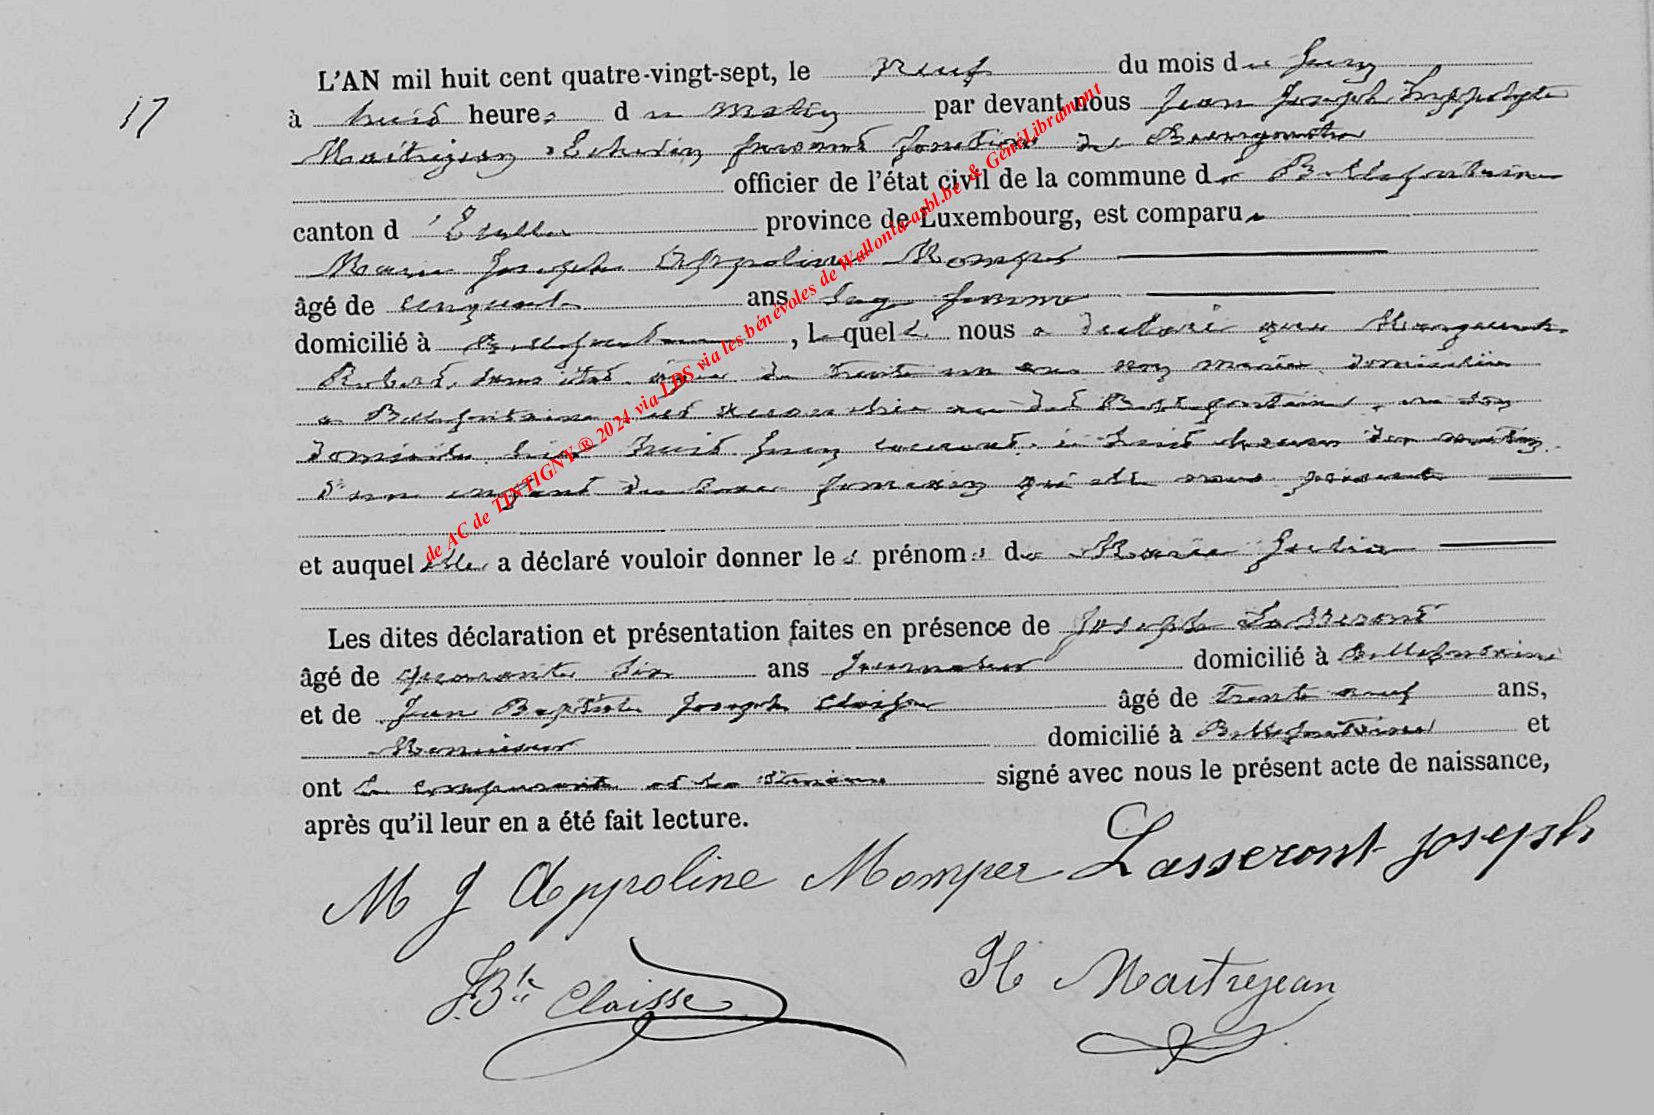 17
L'AN mil huit cent quatre-vingt-sept, le neuf du mois de juin
à huit heures du matin par devant nous Jean Joseph Hippolyte
Maitrejean Echevin faisant fonctions de Bourgmestre
officier de l'état civil de la commune de Bellefontaine
canton d'Etalle province de Luxembourg, est comparue
Marie Joseph Appoline Momper
âgé de cinquante ans Sage femme
domicilié à Bellefontaine, Laquelle nous a declaré que Marguerite
Robert, sans état âgée de trente un ans non mariée domiciliée
a Bellefontaine est accouchée au dit Bellefontaine, en son
domicile hier huit juin courant, à huit heures du matin
d'un enfant du sexe feminin qu'elle nous présente
et auquel elle a déclaré vouloir donner les prénoms de Marie Julia
Les dites déclaration et présentation faites en présence de Joseph Lasseront
âgé de quarante six ans journalier domicilié à Bellefontaine
et de Jean Baptiste Joseph Claisse âgé de trente neuf ans,
Menuisier domicilié à Bellefontaine et
ont la comparante et les témoins signé avec nous le présent acte de naissance,
après qu'il leur en a été fait lecture.
M J Appoline Momper Lasseront joseph
JBte Claisse H Maitrejean
de AC de TINTIGNY® 2021 via LDS via les bénévoles de Wallonia-asbl.be & GénéLibramont